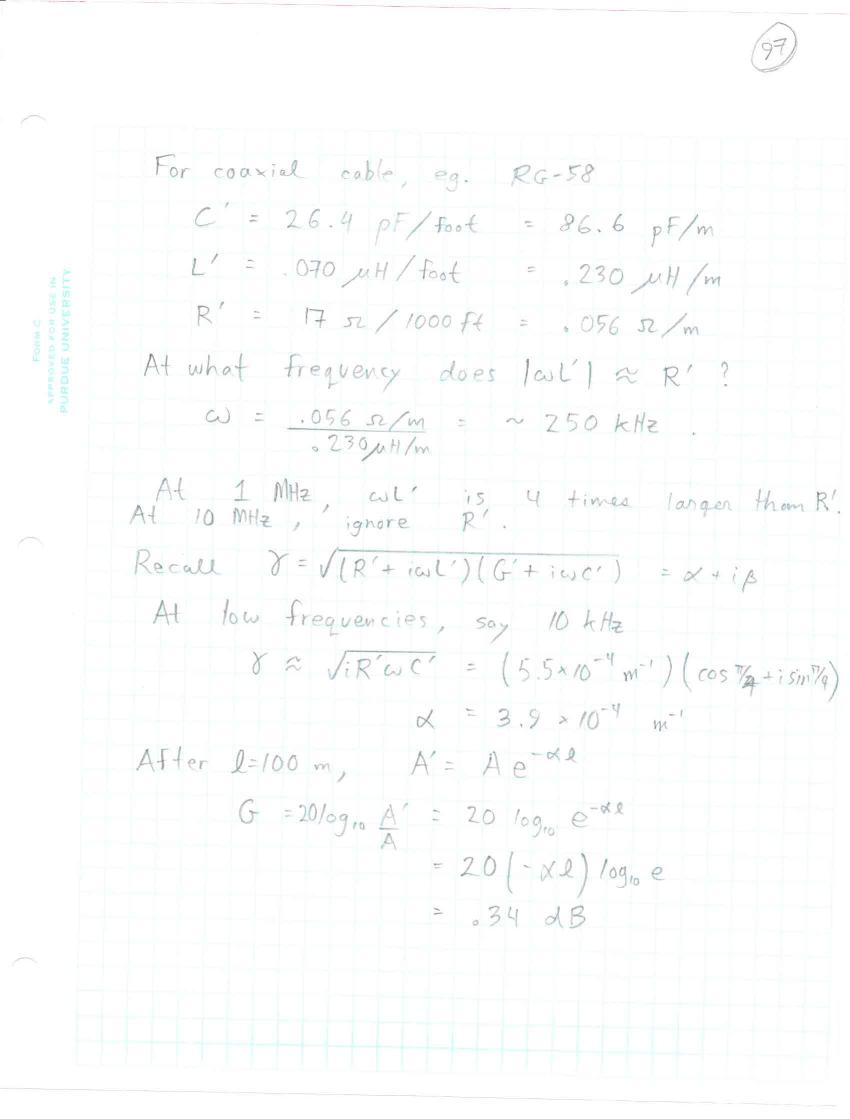 97
FORM C
APPROVED FOR USE IN
PURDUE UNIVERSITY
For coaxial cable, eg. RG-58
C' = 26.4 pF/foot = 86.6 pF/m
L' = .070 μH/foot = .230 μH/m
R' = 17 Ω/1000 ft = .056 Ω/m
At what frequency does |ωL'| ≈ R' ?
ω = .056 Ω/m / .230 μH/m = ~ 250 kHz .
At 1 MHz, ωL' is 4 times larger than R'.
At 10 MHz, ignore R'.
Recall γ = √(R' + iωL')(G' + iωC') = α + iβ
At low frequencies, say 10 kHz
γ ≈ √iR'ωC' = (5.5×10⁻⁴ m⁻¹)(cos π/4 + i sin π/4)
α = 3.9 × 10⁻⁴ m⁻¹
After l=100 m, A' = A e^(-αl)
G = 20 log₁₀ A'/A = 20 log₁₀ e^(-αl)
= 20(-αl) log₁₀ e
= .34 dB